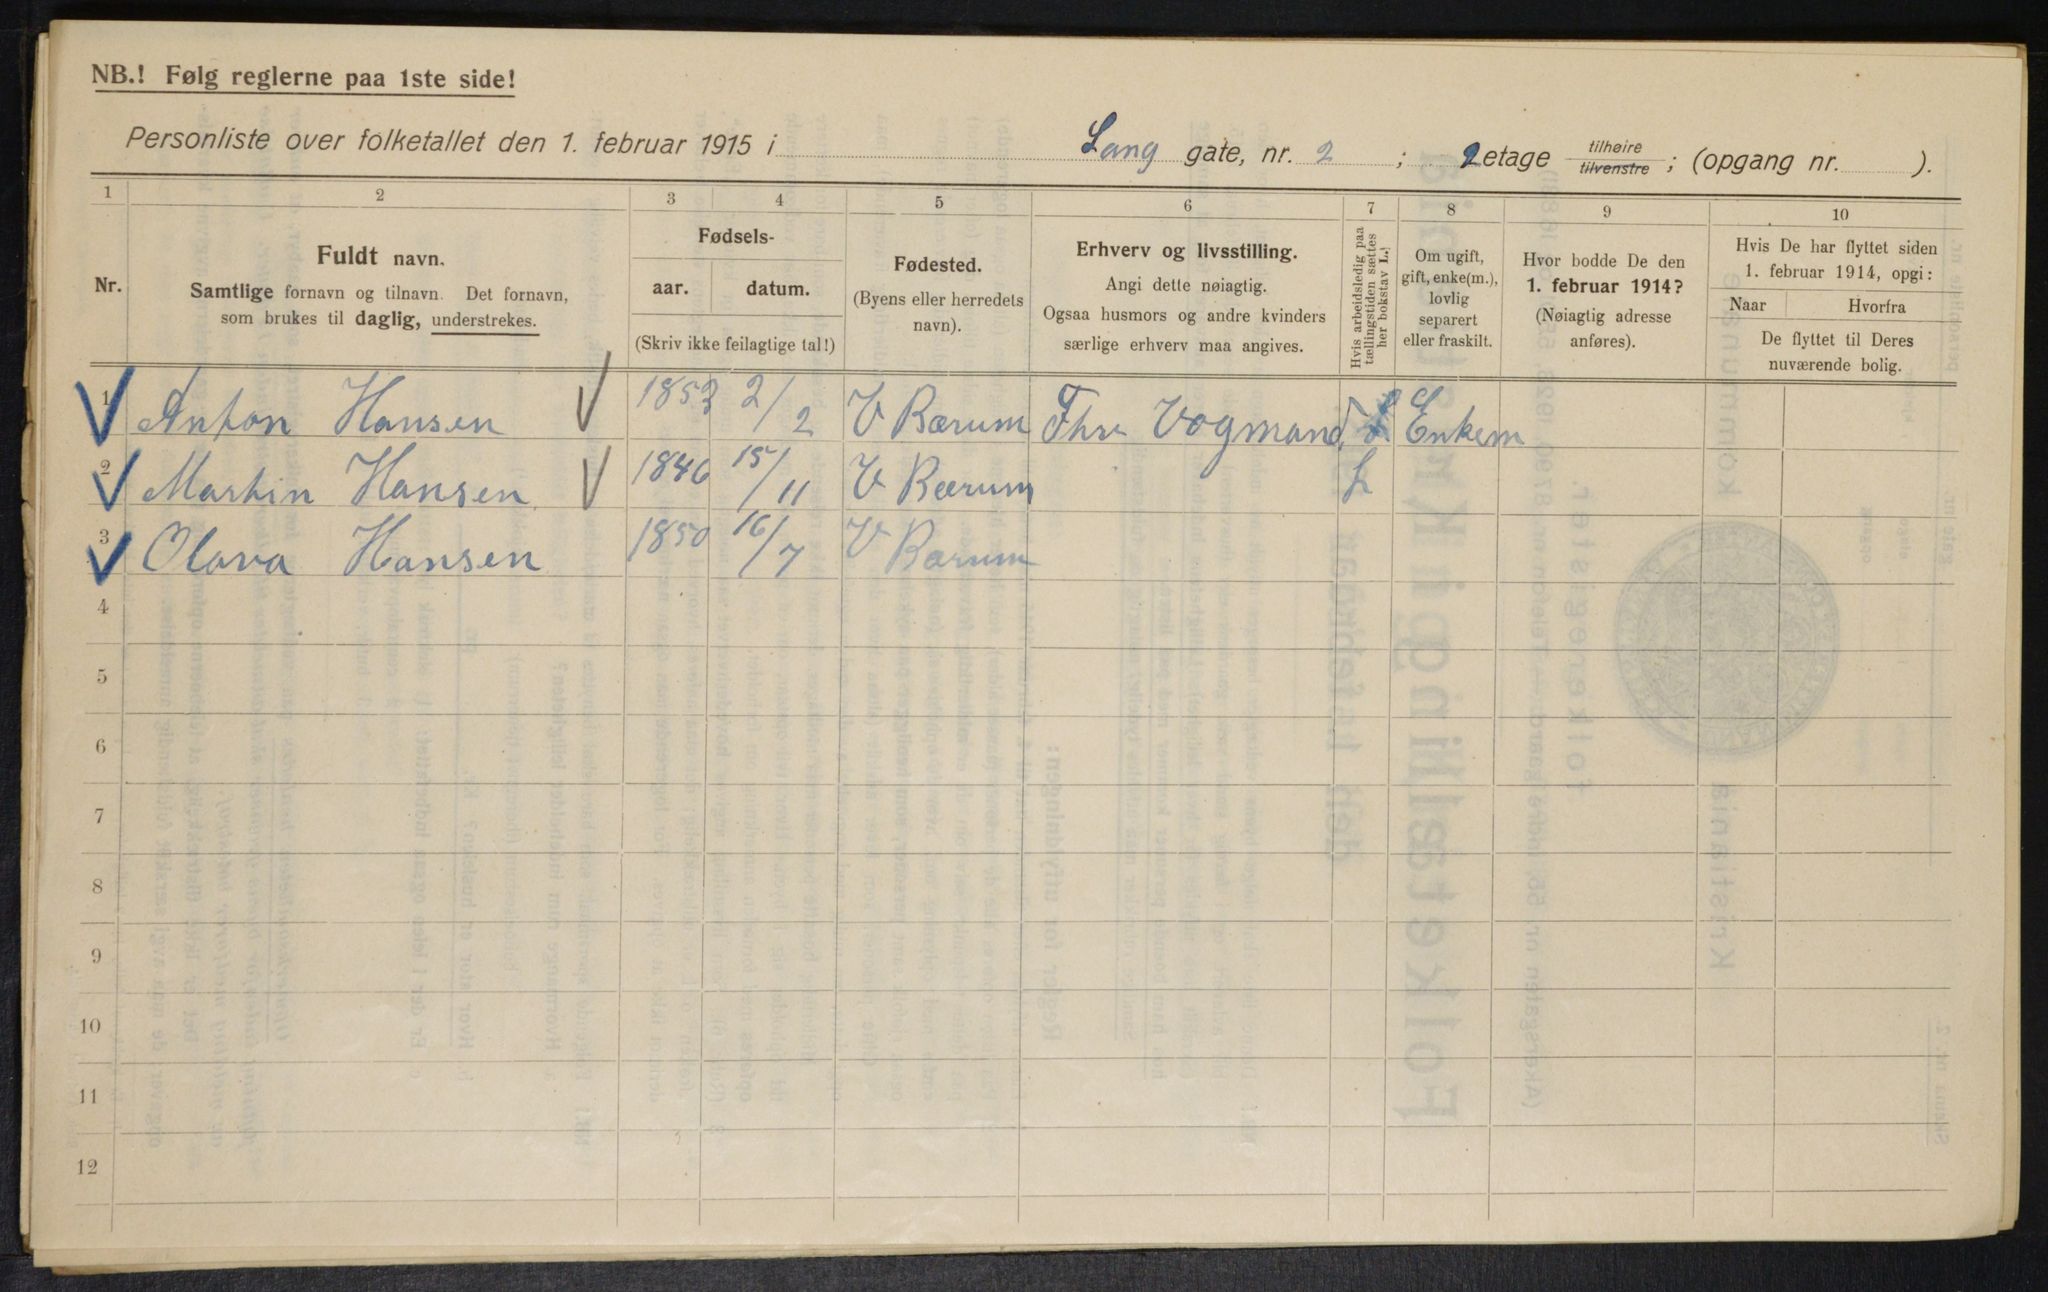 NB.! Følg reglerne paa 1ste side!
Personliste over folketallet den 1. februar 1915 i Lang gate, nr. 2 ; 2 etage tilhøire tilvenstre ; (opgang nr. ).
1 2 3 4 5 6 7 8 9 10
Nr.
Fuldt navn.
Samtlige fornavn og tilnavn. Det fornavn,
som brukes til daglig, understrekes.
Fødsels-
aar. datum.
(Skriv ikke feilagtige tal!)
Fødested.
(Byens eller herredets
navn).
Erhverv og livsstilling.
Angi dette nøiagtig.
Ogsaa husmors og andre kvinders
særlige erhverv maa angives.
Hvis arbeidsledig paa
tællingstiden sættes
her bokstav L.
Om ugift,
gift, enke(m.),
lovlig
separert
eller fraskilt.
Hvor bodde De den
1. februar 1914?
(Nøiagtig adresse
anføres).
Hvis De har flyttet siden
1. februar 1914, opgi:
Naar Hvorfra
De flyttet til Deres
nuværende bolig.
1 Anton Hansen 1853 2/2 V Bærum Fhv Vogmand. L Enkem
2 Martin Hansen 1846 15/11 V Bærum L
3 Olava Hansen 1850 16/7 V Bærum
4
5
6
7
8
9
10
11
12